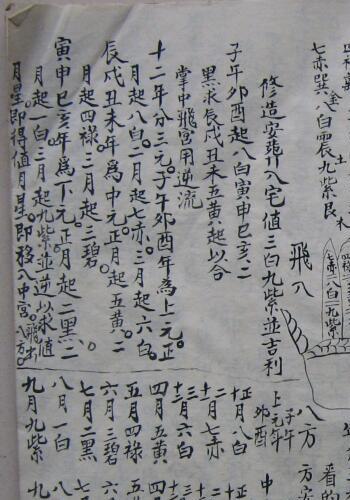 七赤巽八白震九紫艮
修造安葬入宅值三白九紫並吉利
子午卯酉起八白寅申巳亥二
黑求辰戌丑未五黃起以合
掌中飛宮用逆流
十二年分三元。子午卯酉年為上元。正
月起八白。二月起七赤。三月起六白。
辰戌丑未年為中元。正月起五黃。二
月起四祿。三月起三碧。
寅申巳亥年為下元。正月起二黑。二
月起一白。三月起九紫。並逆以求值
月星。即得值月星。即移入中宮。飛出八方。
土
木
飛入
七赤
八白
九紫
八方
子午
卯酉
上元年
中
正月八白
二月七赤
三月六白
四月五黃
五月四祿
六月三碧
七月二黑
八月一白
九月九紫
十月
十一月
十二月
看的